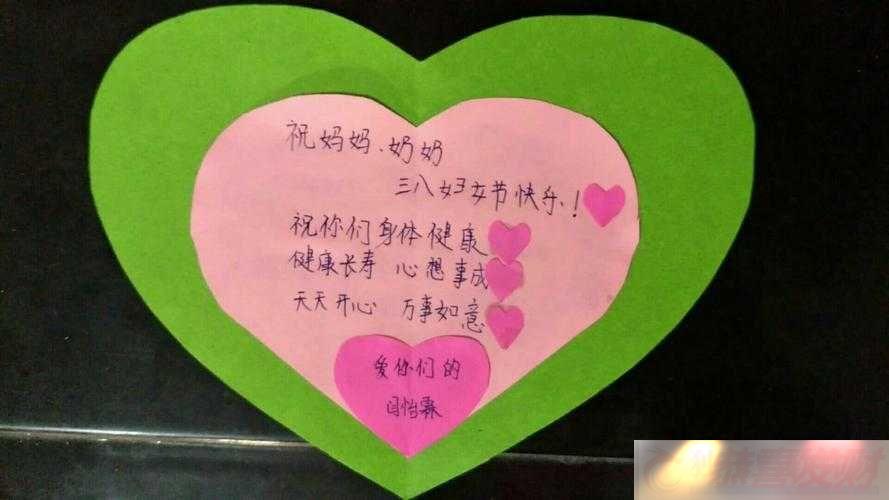 祝妈妈、奶奶
三八妇女节快乐!
祝你们身体健康
健康长寿 心想事成
天天开心 万事如意
爱你们的
闫怡霖